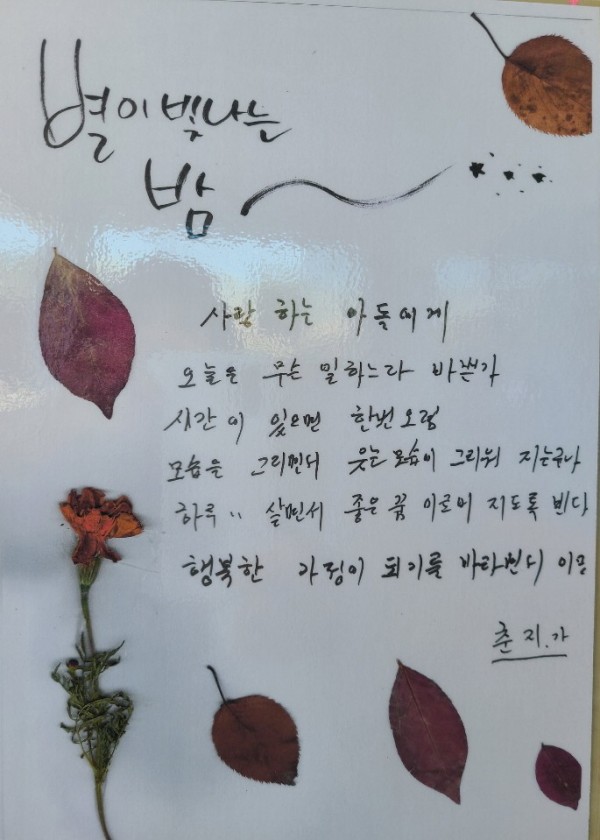 별이 빛나는
밤
사랑 하는 아들에게
오늘은 무슨 일하느라 바쁜가
시간이 있으면 한번 오렴
모습을 그리면서 웃는 모습이 그리워 지는구나
하루 〃 살면서 좋은 꿈 이루어 지도록 빈다
행복한 가정이 되기를 바라면서 이만
춘지.가